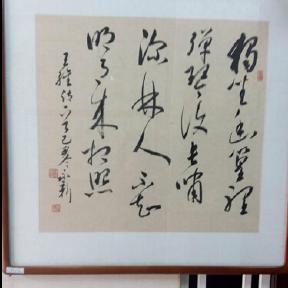 独坐幽篁里
弹琴复长啸
深林人不知
明月来相照
王维诗